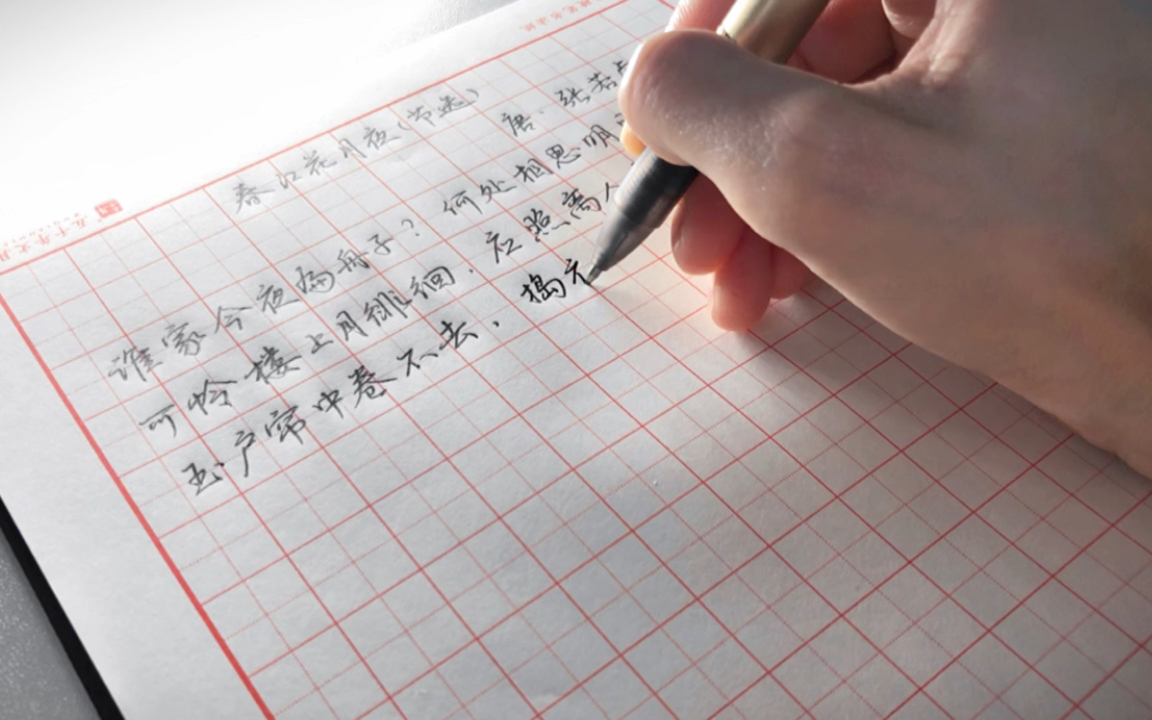 春江花月夜(节选)
唐·张若
谁家今夜扁舟子？何处相思明
可怜楼上月徘徊，应照离人
玉户帘中卷不去，捣